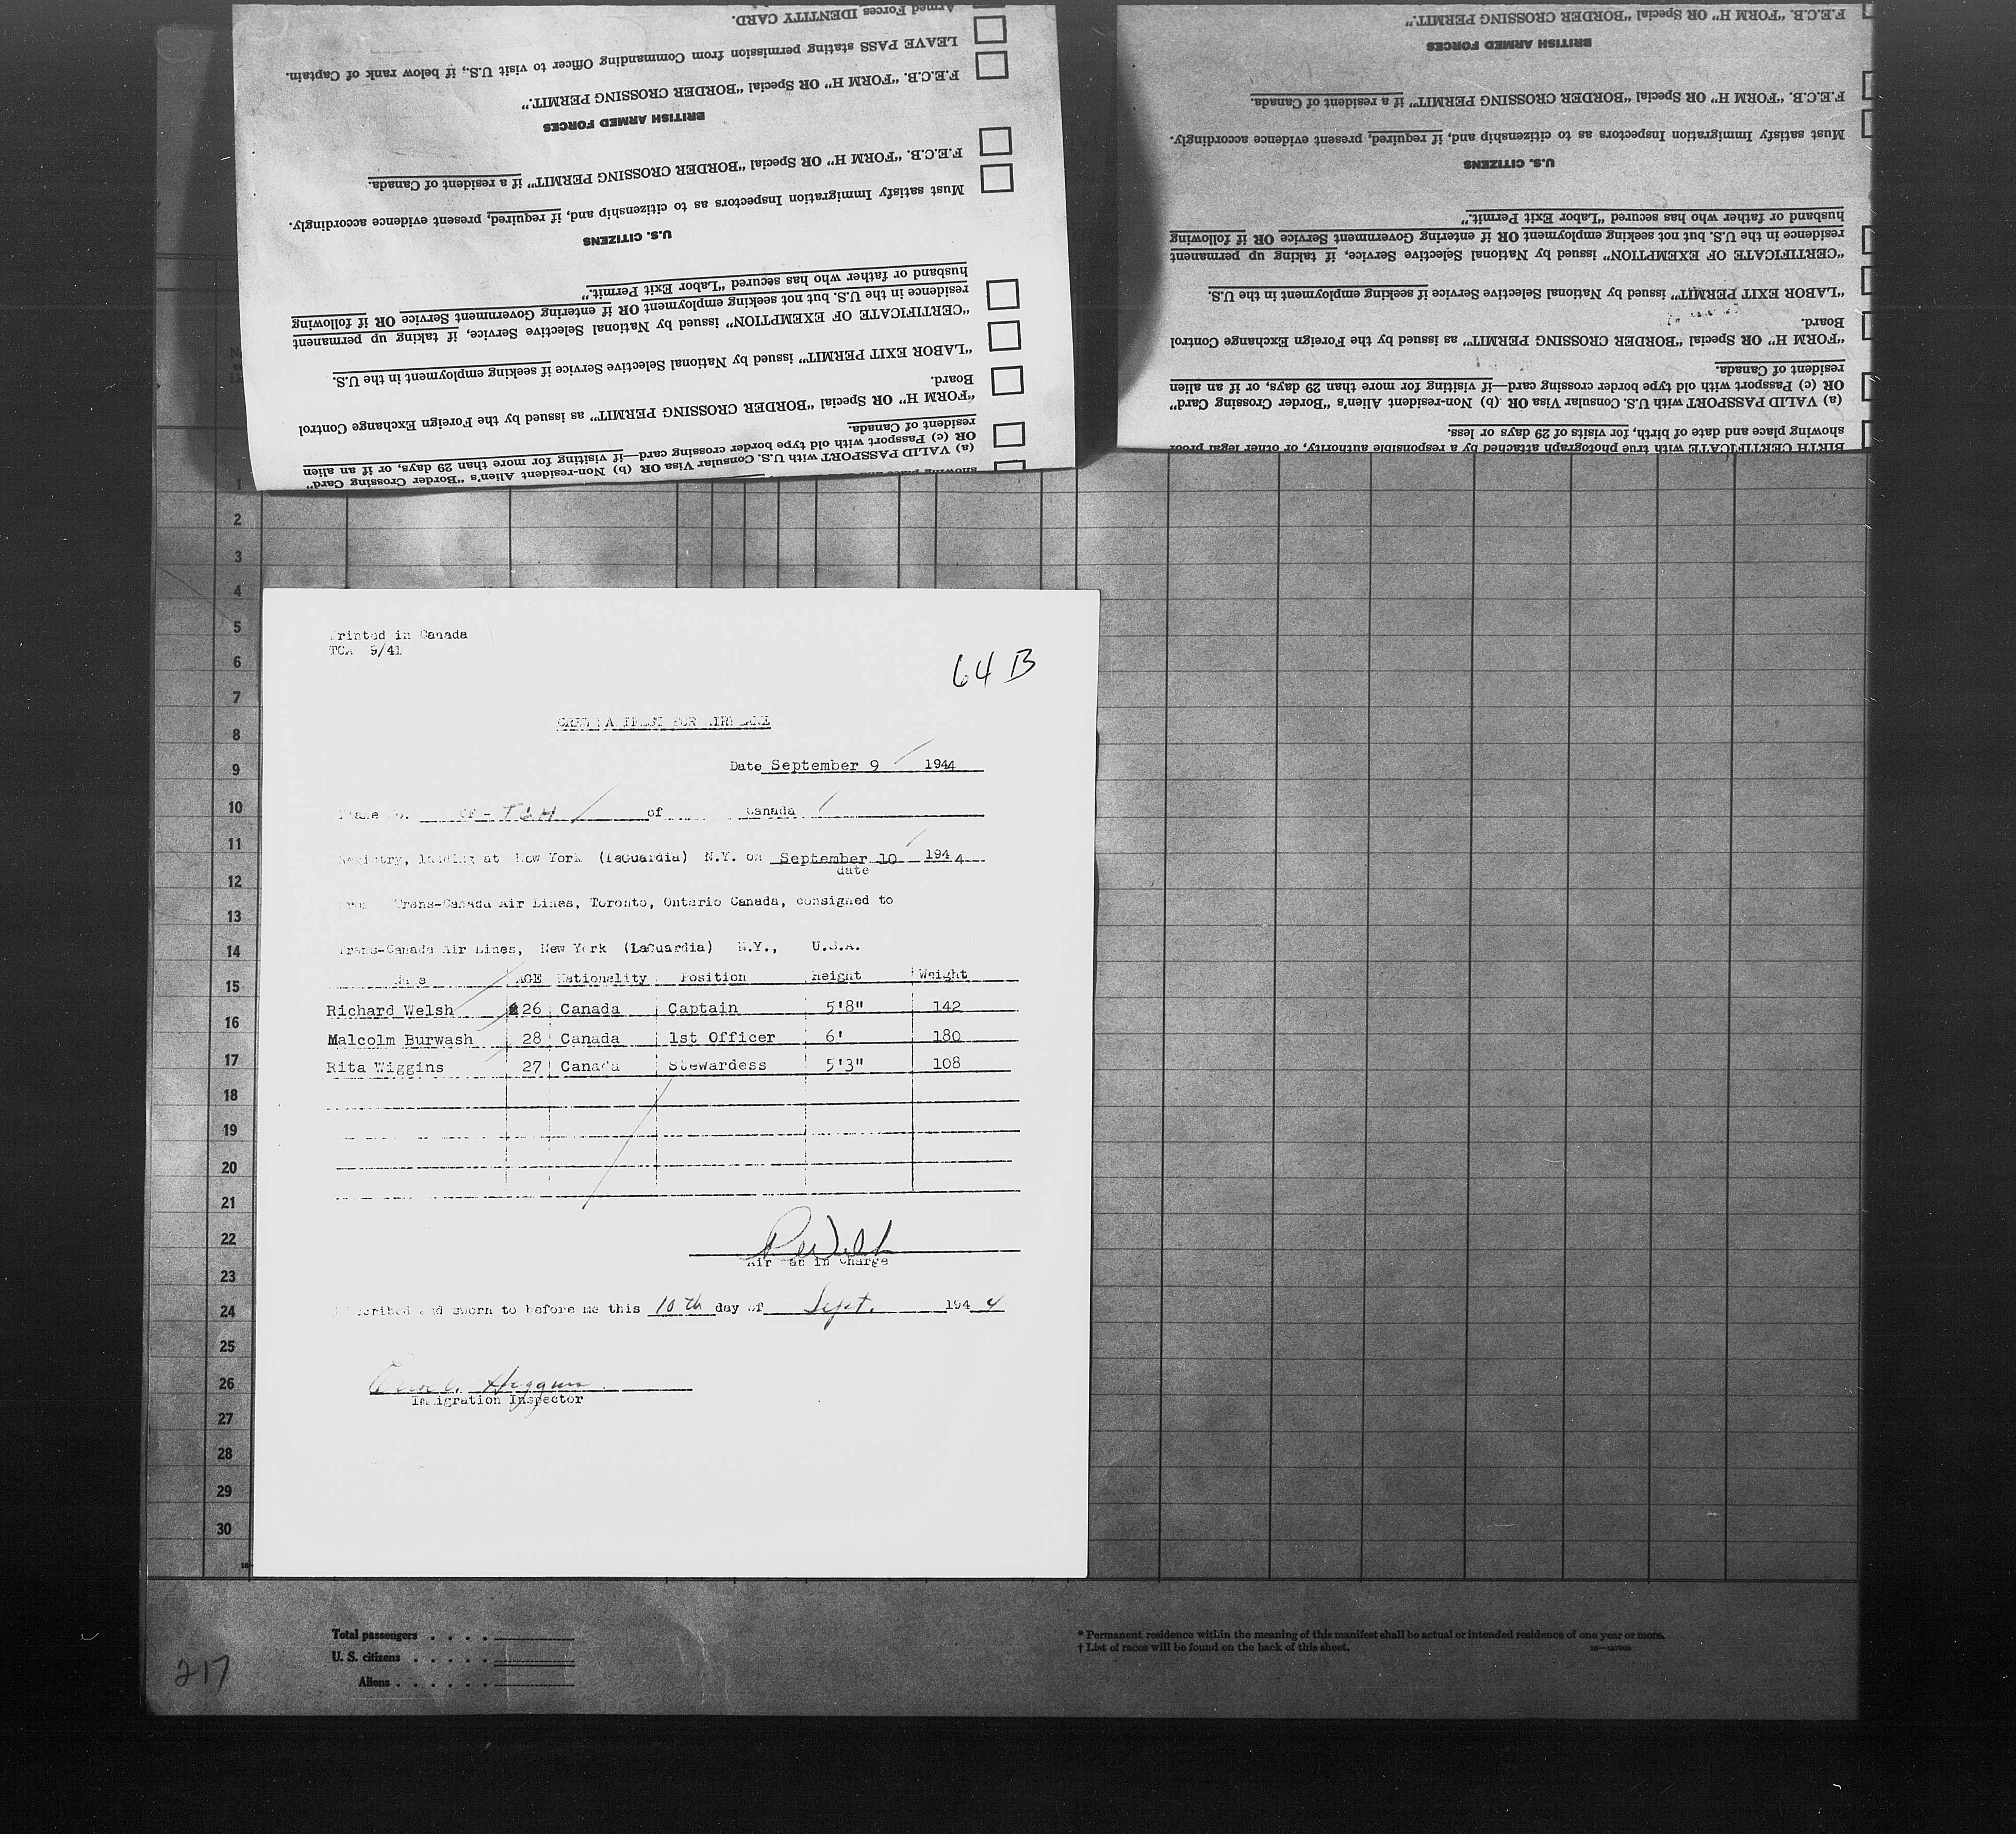 Armed Forces IDENTITY CARD.
LEAVE PASS stating permission from Commanding Officer to visit U.S., if below rank of Captain.
F.E.C.B. "FORM H" OR Special "BORDER CROSSING PERMIT."
BRITISH ARMED FORCES
F.E.C.B. "FORM H" OR Special "BORDER CROSSING PERMIT" if a resident of Canada.
Must satisfy Immigration Inspectors as to citizenship and, if required, present evidence accordingly.
U.S. CITIZENS
husband or father who has secured "Labor Exit Permit."
residence in the U.S. but not seeking employment OR if entering Government Service OR if following
"CERTIFICATE OF EXEMPTION" issued by National Selective Service, if taking up permanent
"LABOR EXIT PERMIT" issued by National Selective Service if seeking employment in the U.S.
Board.
"FORM H" OR Special "BORDER CROSSING PERMIT" as issued by the Foreign Exchange Control
resident of Canada.
OR (c) Passport with old type border crossing card—if visiting for more than 29 days, or if an alien
(a) VALID PASSPORT with U.S. Consular Visa OR (b) Non-resident Alien's "Border Crossing Card"
F.E.C.B. "FORM H" OR Special "BORDER CROSSING PERMIT."
BRITISH ARMED FORCES
F.E.C.B. "FORM H" OR Special "BORDER CROSSING PERMIT" if a resident of Canada.
Must satisfy Immigration Inspectors as to citizenship and, if required, present evidence accordingly.
U.S. CITIZENS
husband or father who has secured "Labor Exit Permit."
residence in the U.S. but not seeking employment OR if entering Government Service OR if following
"CERTIFICATE OF EXEMPTION" issued by National Selective Service, if taking up permanent
"LABOR EXIT PERMIT" issued by National Selective Service if seeking employment in the U.S.
Board.
"FORM H" OR Special "BORDER CROSSING PERMIT" as issued by the Foreign Exchange Control
resident of Canada.
OR (c) Passport with old type border crossing card—if visiting for more than 29 days, or if an alien
(a) VALID PASSPORT with U.S. Consular Visa OR (b) Non-resident Alien's "Border Crossing Card"
showing place and date of birth, for visits of 29 days or less.
BIRTH CERTIFICATE with true photograph attached by a responsible authority, or other legal proof
1
2
3
4
5
6
7
8
9
10
11
12
13
14
15
16
17
18
19
20
21
22
23
24
25
26
27
28
29
30
Printed in Canada
TCA 9/41
64 B
FOR AIRPLANE
Date September 9 1944
Plane No. CF- of Canada
Registry, landing at New York (LaGuardia) N.Y. on September 10 1944
date
From Trans-Canada Air Lines, Toronto, Ontario Canada, consigned to
Trans-Canada Air Lines, New York (LaGuardia) N.Y., U.S.A.
Name AGE Nationality Position Height Weight
Richard Welsh 26 Canada Captain 5'8" 142
Malcolm Burwash 28 Canada 1st Officer 6' 180
Rita Wiggins 27 Canada Stewardess 5'3" 108
R Welsh
Air Man in Charge
Subscribed and sworn to before me this 10th day of Sept. 1944
Higgins
Immigration Inspector
Total passengers
U. S. citizens
Aliens
* Permanent residence within the meaning of this manifest shall be actual or intended residence of one year or more.
† List of races will be found on the back of this sheet.
217